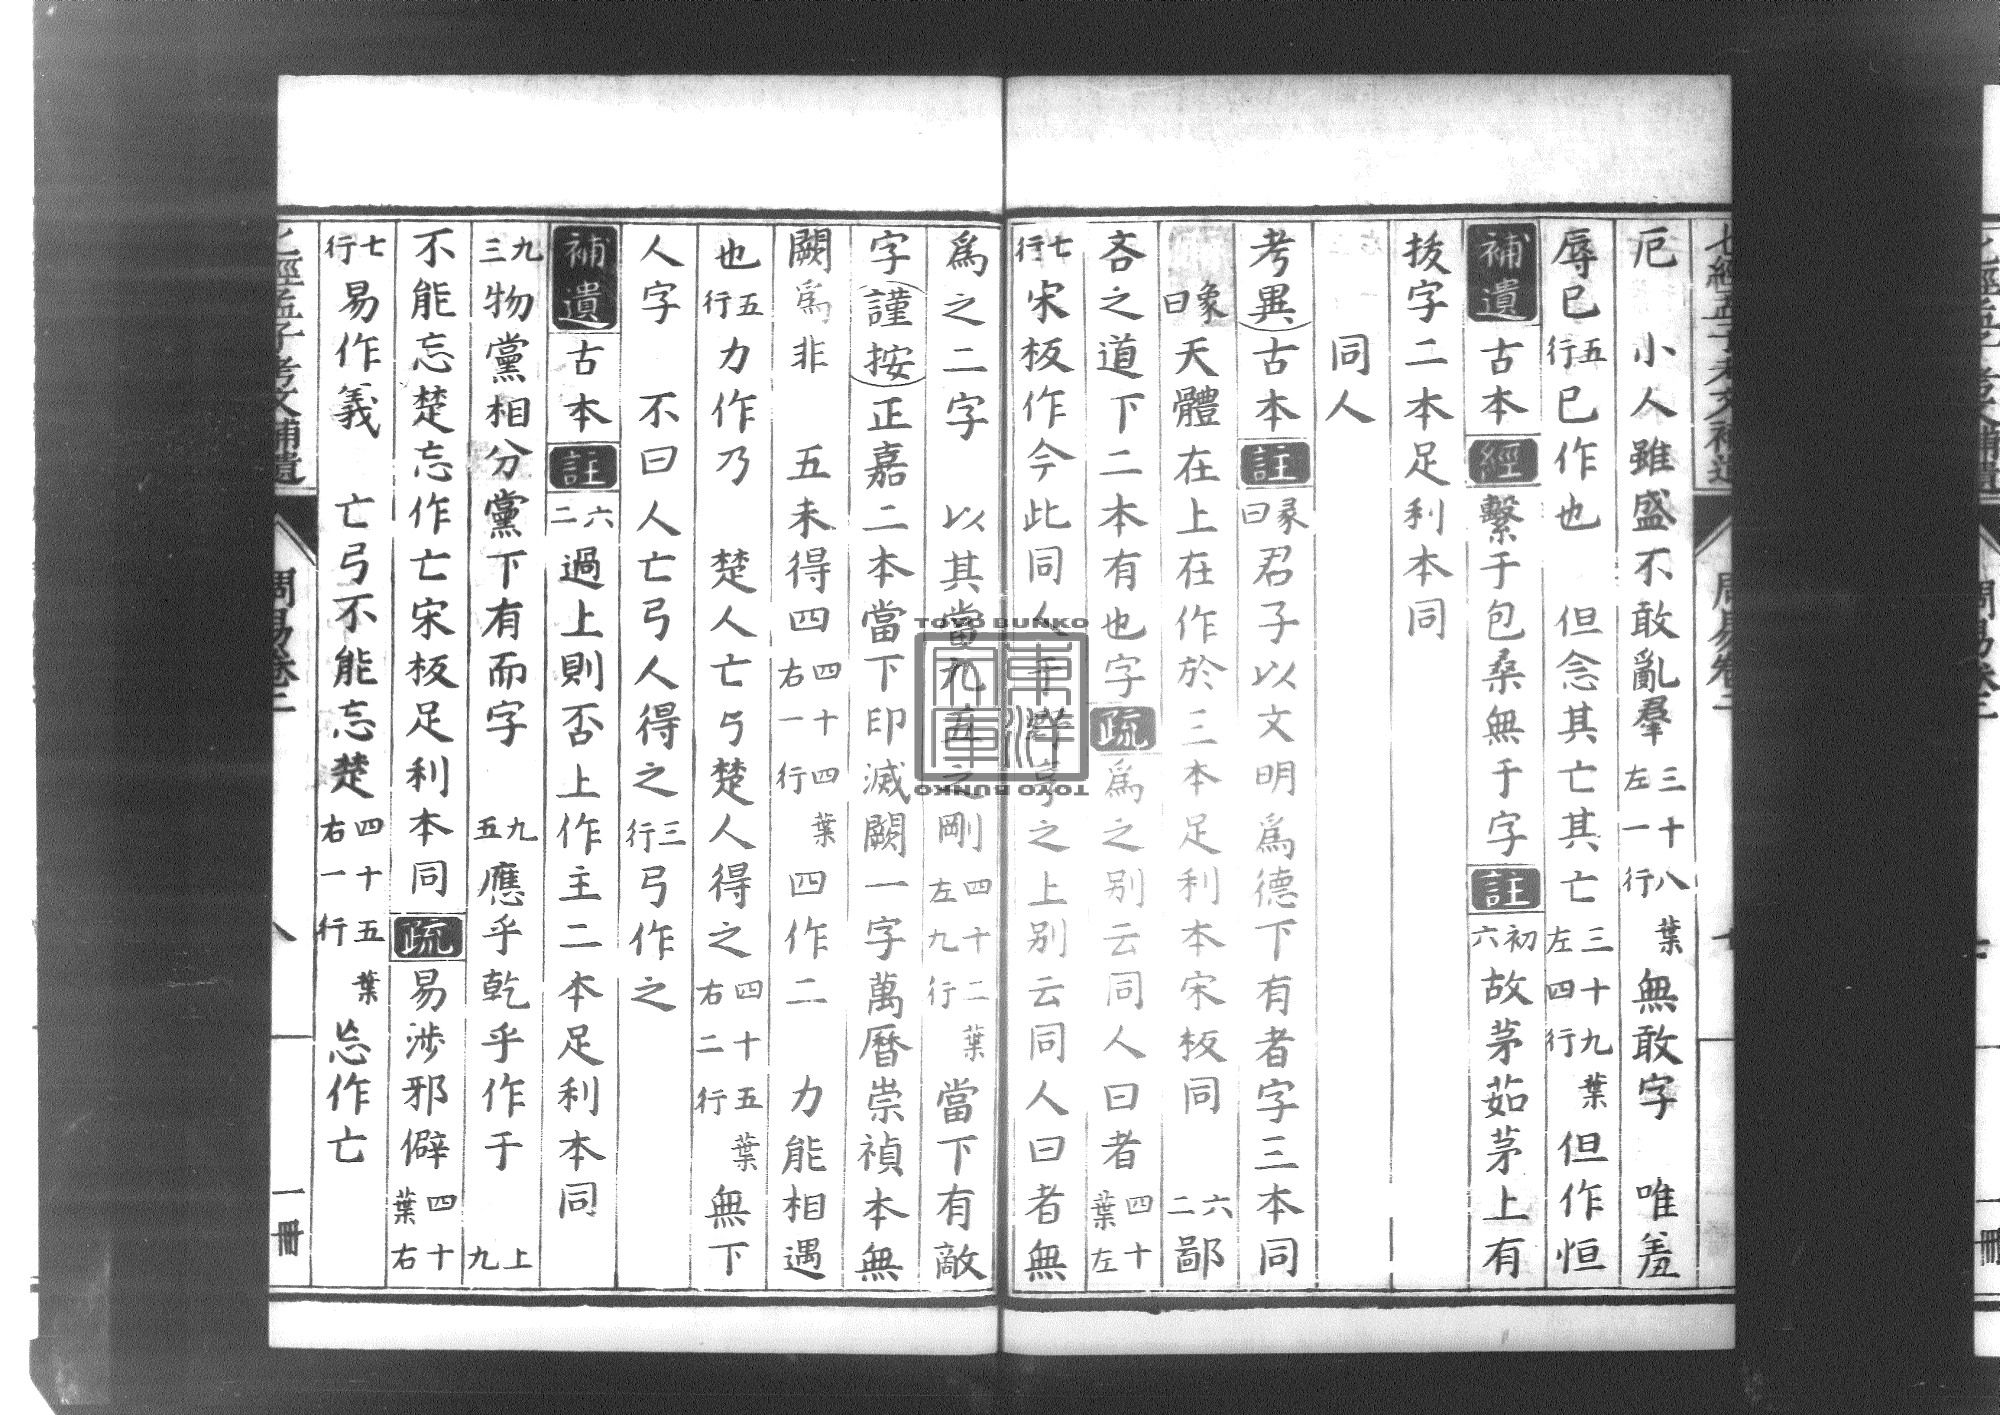 厄　小人雖盛不敢亂羣三十八葉左一行無敢字　唯羞
辱已五行已作也　但念其亡其亡三十九葉左四行但作恒
補遺古本經繫于包桑無于字註初六故茅茹茅上有
拔字二本足利本同
同人
考異古本註彖曰君子以文明爲德下有者字三本同
象曰天體在上在作於三本足利本宋板同　六二鄙
吝之道下二本有也字疏爲之别云同人曰者四十葉左
七行宋板作今此同人于野亨之上别云同人曰者無
爲之二字　以其當九五之剛四十二葉左九行當下有敵
字謹按正嘉二本當下印滅闕一字萬曆崇禎本無
闕爲非　五未得四四十四葉右一行四作二　力能相遇
也五行力作乃　楚人亡弓楚人得之四十五葉右二行無下
人字　不曰人亡弓人得之三行弓作之
補遺古本註六二過上則否上作主二本足利本同
九三物黨相分黨下有而字　九五應乎乾乎作于　上九
不能忘楚忘作亡宋板足利本同疏易涉邪僻四十葉右
七行易作義　亡弓不能忘楚四十五葉右一行忘作亡
七經孟子考文補遺
周易卷二
八
一冊